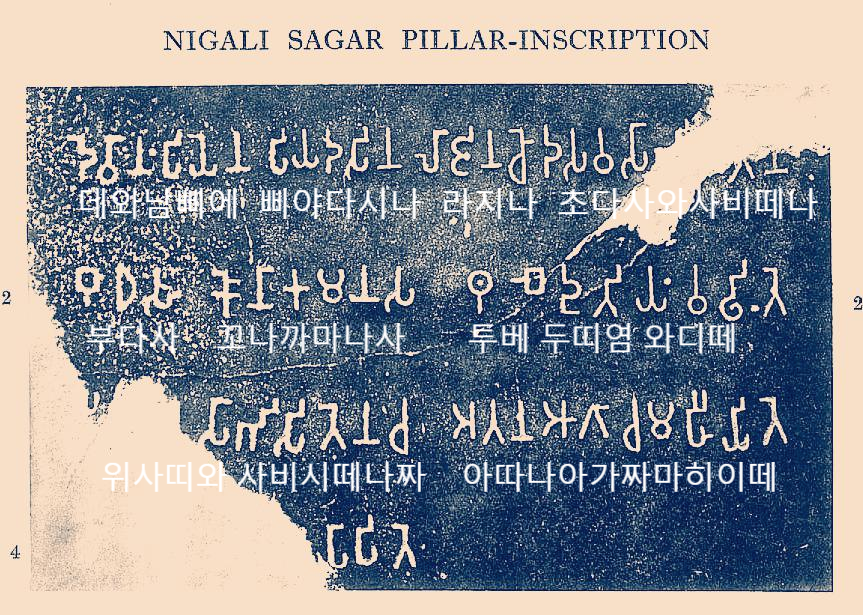 NIGALI SAGAR PILLAR-INSCRIPTION
𑀤𑁂𑀯𑀸𑀦𑀁𑀧𑀺𑀬𑁂𑀦 𑀧𑀺𑀬𑀤𑀲𑀺𑀦 𑀮𑀸𑀚𑀺𑀦 𑀘𑁄𑀤𑀲𑀯𑀲𑀸 𑀢𑁂𑀦
데와남삐에 삐야다시나 라지나 초다사와사비떼나
2 𑀩𑀼𑀥𑀲 𑀓𑁄𑀦𑀸𑀓𑀫𑀦𑀲 𑀣𑀼𑀩𑁂 𑀤𑀼𑀢𑀺𑀬𑀁 𑀯𑀠𑀺𑀢𑁂 2
부다사 꼬나까마나사 투베 두띠염 와디떼
𑀲𑀸𑀪𑀺𑀲𑀺𑀢𑁂𑀦𑀘 𑀅𑀢𑀦𑀆𑀕𑀸𑀘𑀫𑀳𑀻𑀬𑀺𑀢𑁂
위사띠와 사비시떼나짜 아따나아가짜마히이떼
4 𑀧𑀸𑀧𑀺𑀢𑁂